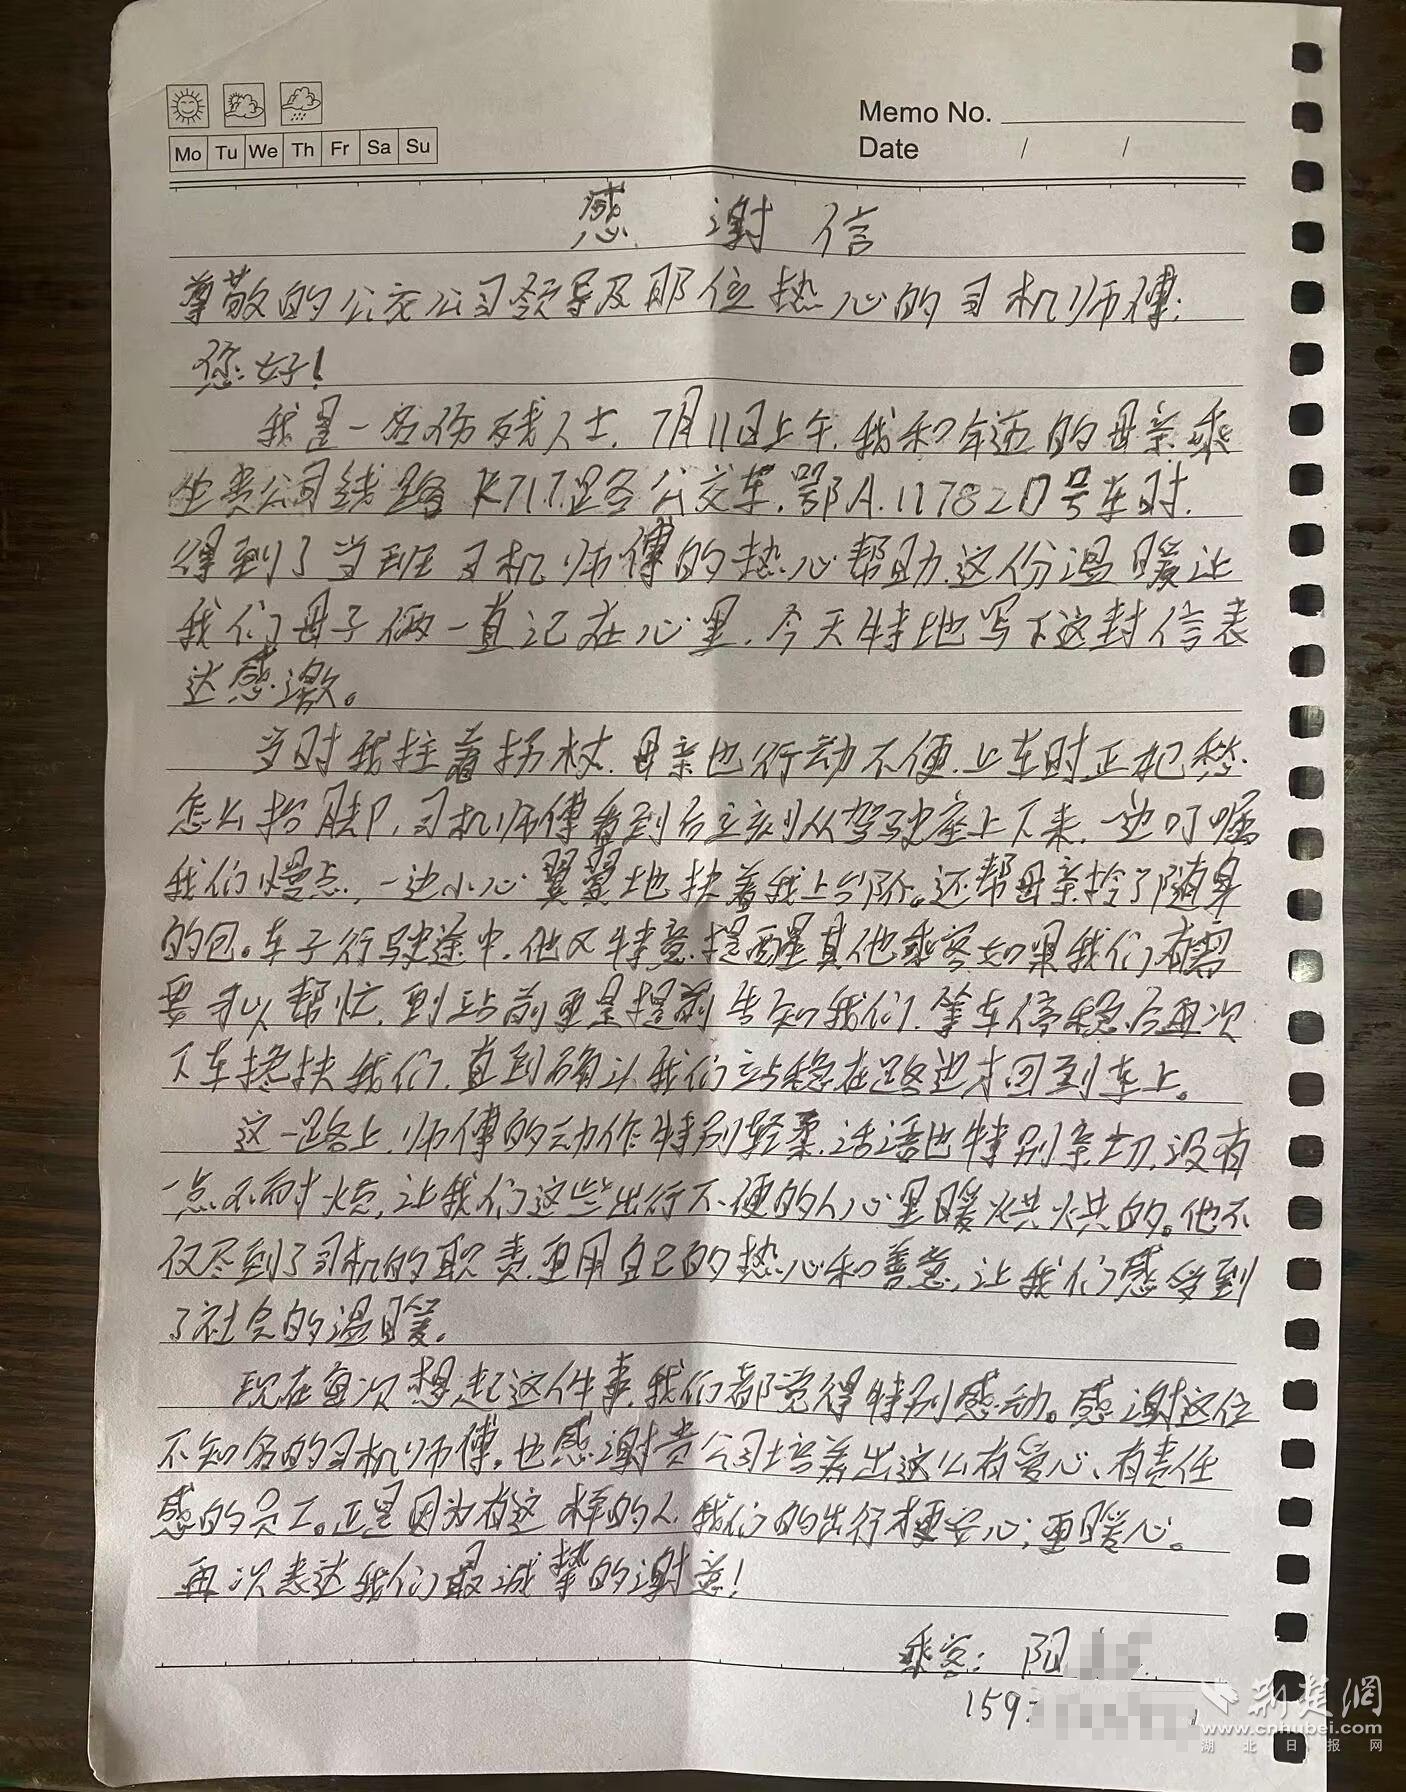 Mo Tu We Th Fr Sa Su
Memo No.
Date / /
感谢信
尊敬的公交公司领导及那位热心的司机师傅:
您好!
我是一名伤残人士,7月11日上午,我和年迈的母亲乘
坐贵公司线路K717路公交车,鄂A.11782D号车时,
得到了当班司机师傅的热心帮助,这份温暖让
我们母子俩一直记在心里,今天特地写下这封信表
达感激。
当时我拄着拐杖,母亲也行动不便,上车时正犯愁
怎么抬脚,司机师傅看到后立刻从驾驶座上下来,一边叮嘱
我们慢点,一边小心翼翼地扶着我上台阶。还帮母亲拎了随身
的包。车子行驶途中,他又特意提醒其他乘客如果我们有需
要可以帮忙,到站前更是提前告知我们,等车停稳后再次
下车搀扶我们,直到确认我们站稳在路边才回到车上。
这一路上,师傅的动作特别轻柔,话语也特别亲切,没有
一点不耐烦,让我们这些出行不便的人心里暖烘烘的。他不
仅尽到了司机的职责,更用自己的热心和善意,让我们感受到
了社会的温暖。
现在每次想起这件事,我们都觉得特别感动。感谢这位
不知名的司机师傅,也感谢贵公司培养出这么有爱心、有责任
感的员工。正是因为有这样的人,我们的出行才更安心,更暖心。
再次表达我们最诚挚的谢意!
乘客:阳
159
荆楚网
www.cnhubei.com
湖北日报网